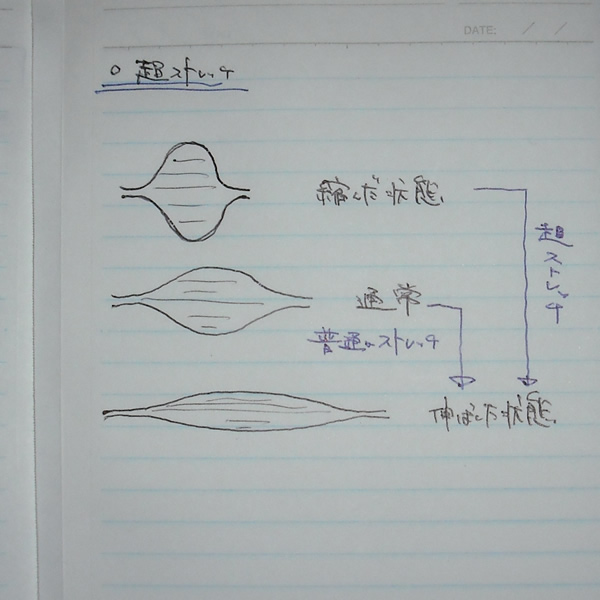 DATE: / /
○ 超ストレッチ
縮んだ状態、
超ストレッチ
通常
普通のストレッチ
伸ばした状態、